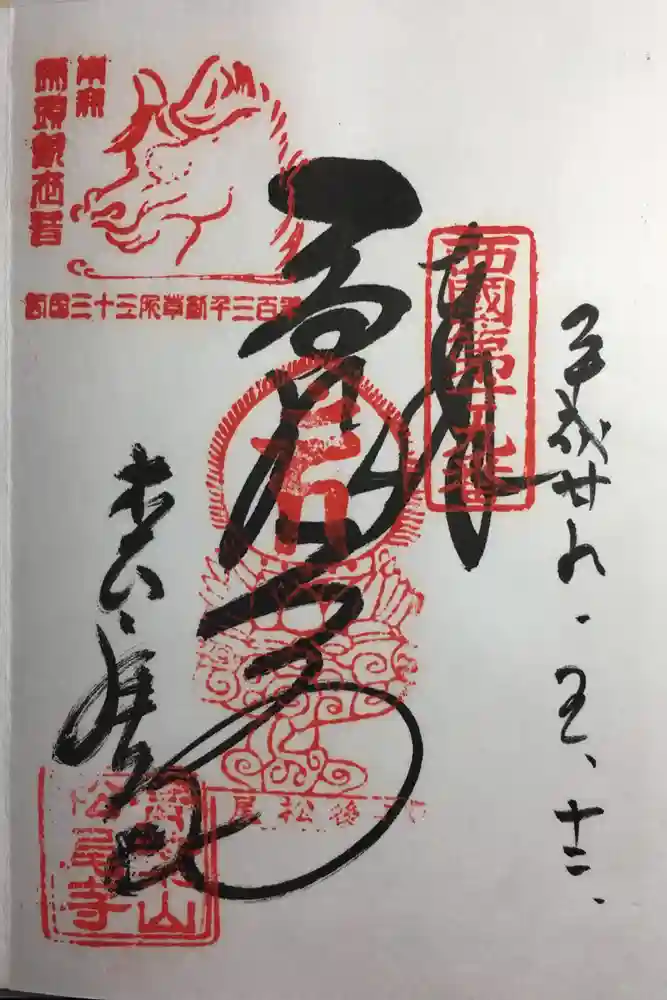 平成廿九・五、十二、
西國第廿九番
奉拝
本尊
馬頭観世音
西国三十三所草創千三百年
丹後松尾
青葉山
松尾寺